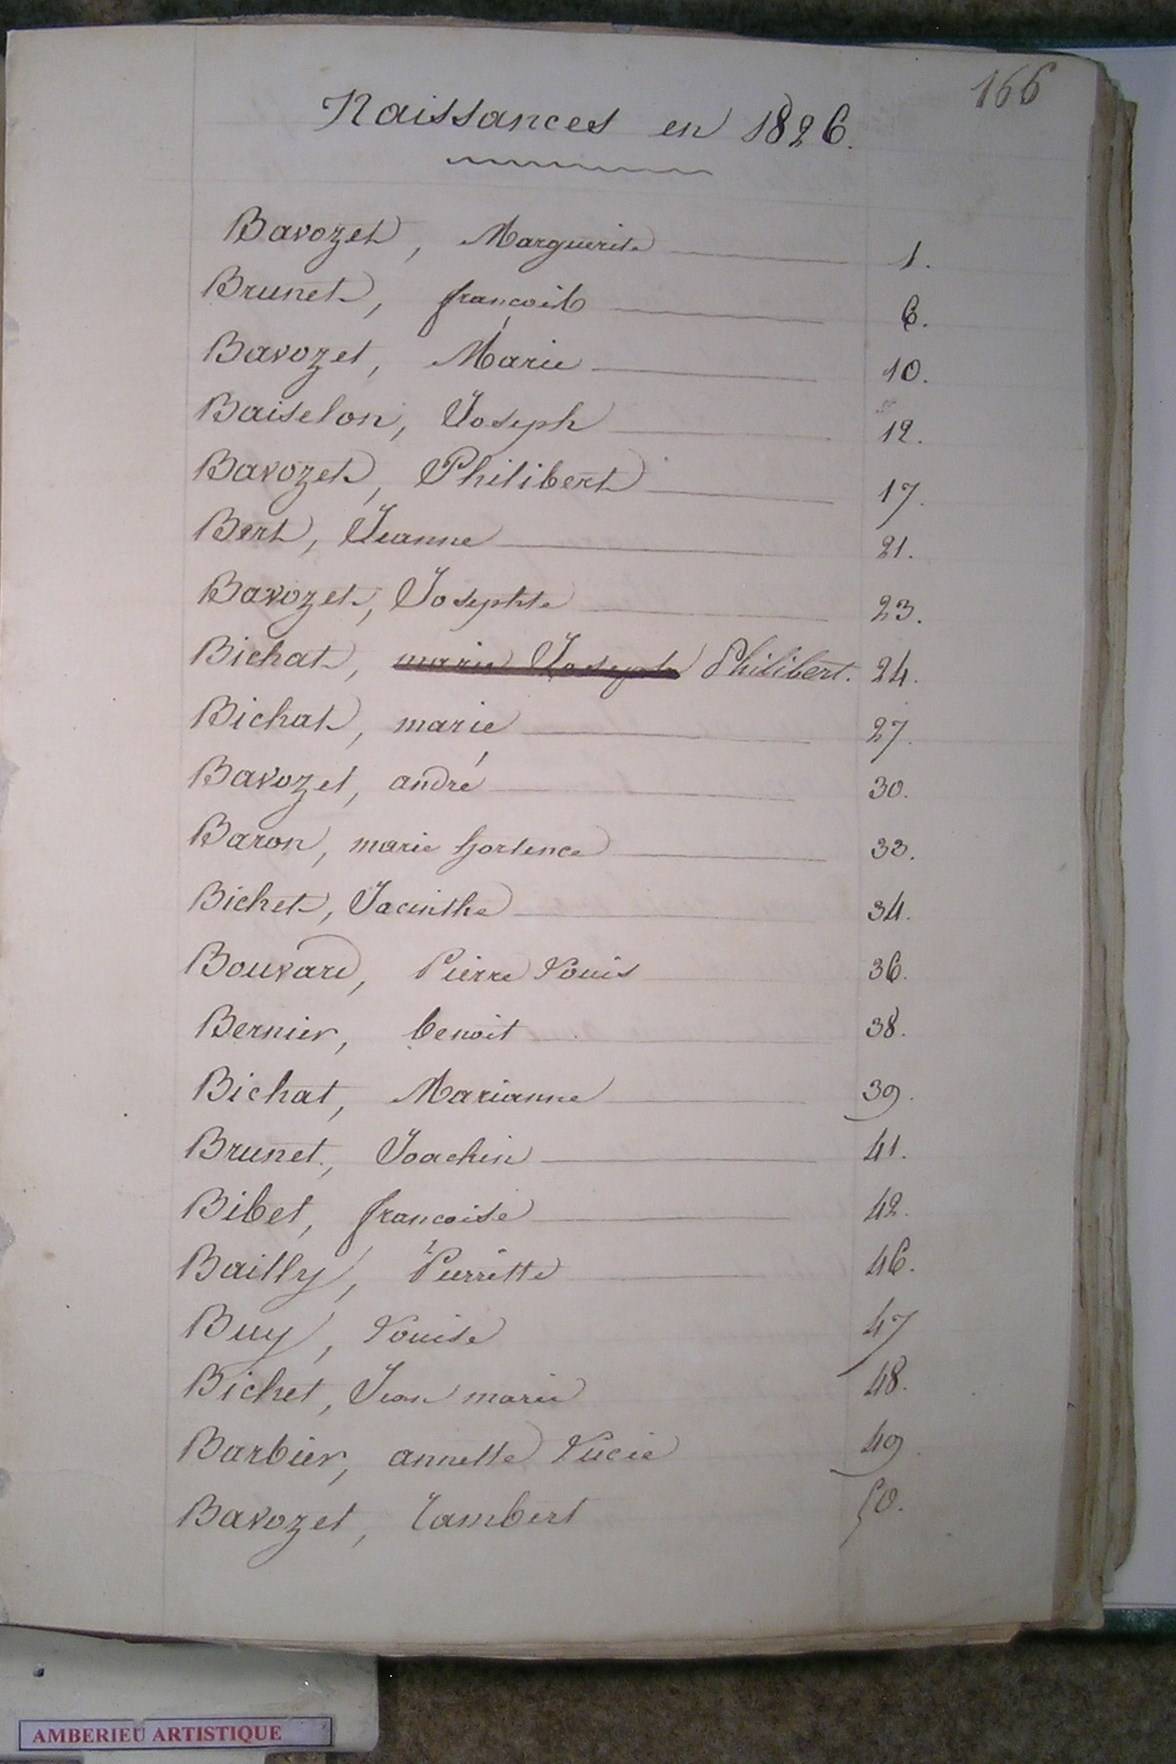 166
Naissances en 1826.
Bavozet, Marguerite 1.
Brunet, françois 6.
Bavozet, Marie 10.
Baiselon, Joseph 12.
Bavozet, Philibert 17.
Bert, Jeanne 21.
Bavozet, Josephte 23.
Bichat, marie Joseph Philibert. 24.
Bichat, marie 27.
Bavozet, andré 30.
Baron, marie hortence 33.
Bichet, Jacinthe 34.
Bouvard, Pierre Louis 36.
Bernier, benoit 38.
Bichat, Marianne 39.
Brunet, Joachin 41.
Bibet, francoise 42.
Bailly, Pierrette 46.
Buy, Louise 47
Bichet, Jean marie 48.
Barbier, annette Lucie 49.
Bavozet, Lambert 50.
AMBERIEU ARTISTIQUE